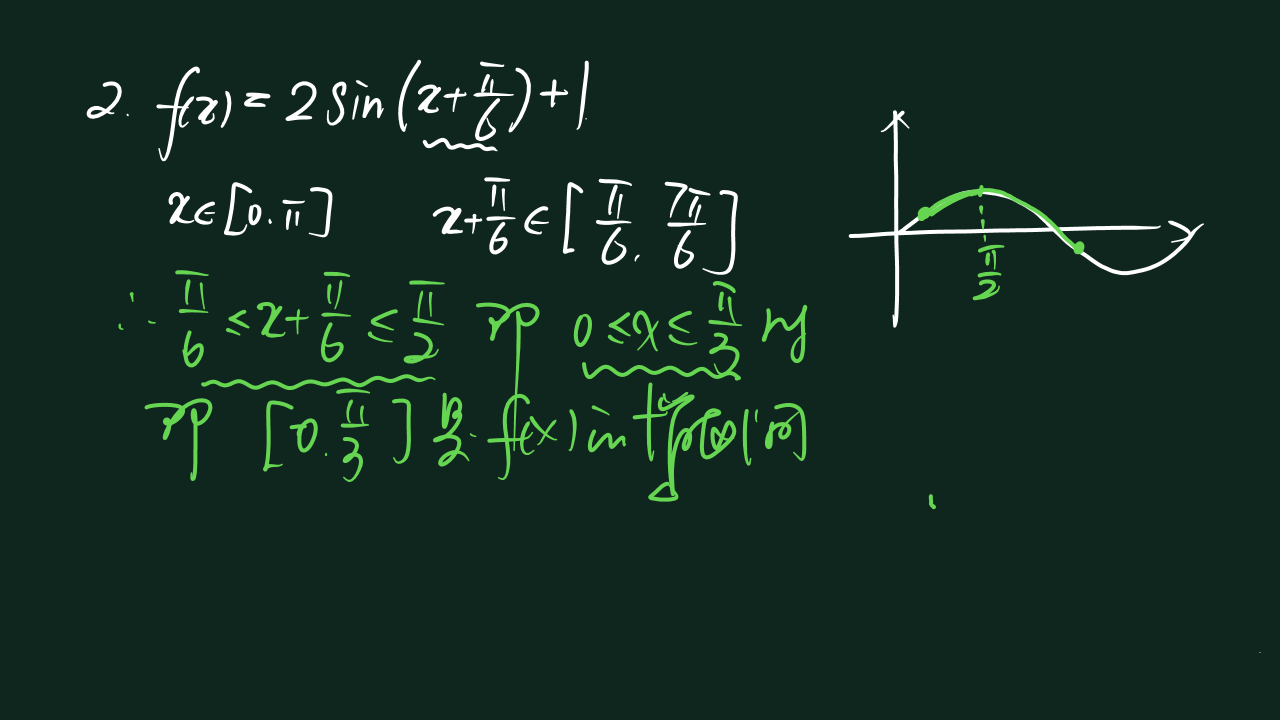 2. f(x) = 2sin(x+π/6)+1
x∈[0.π] x+π/6∈[π/6, 7π/6]
π/2
∴ π/6 ≤ x+π/6 ≤ π/2 即 0≤x≤π/3 时
即 [0.π/3] 是 f(x)